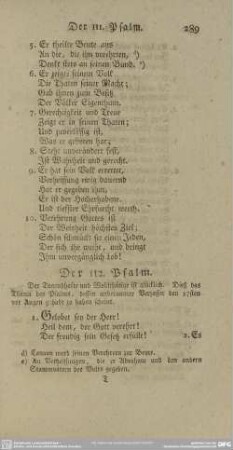 Der 111. Psalm. 289
5. Er theilet Beute aus
An die, die ihn verehren, d)
Denkt stets an seinen Bund. e)
6. Er zeiget seinem Volk
Die Thaten seiner Macht;
Gab ihnen zum Besitz
Der Völker Eigenthum.
7. Gerechtigkeit und Treue
Zeigt er in seinen Thaten;
Und zuverläßig ist,
Was er geboten hat;
8. Steht unverändert fest.
Ist Wahrheit und gerecht.
9. Er hat sein Volk errettet,
Verheissung ewig dauernd
Hat er gegeben ihm,
Er ist der Hocherhabene,
Und tiefster Ehrfurcht werth.
10. Verehrung Gottes ist
Der Weisheit höchstes Ziel;
Schön schmückt sie einen Jeden,
Der sich ihr weiht, und bringt
Ihm unvergänglich Lob!
Der 112. Psalm.
Der Tugendhafte und Wohlthätige ist glücklich. Dieß das
Thema des Psalms, dessen unbekannter Verfasser den 37sten
vor Augen gehabt zu haben scheint.
1. Gelobet sey der Herr!
Heil dem, der Gott verehrt!
Der freudig sein Gesetz erfüllt! 2. Es
d) Canaan ward seinen Verehrern zur Beute.
e) An Verheissungen, die er Abraham und den andern
Stammvätern des Volks gegeben.
T